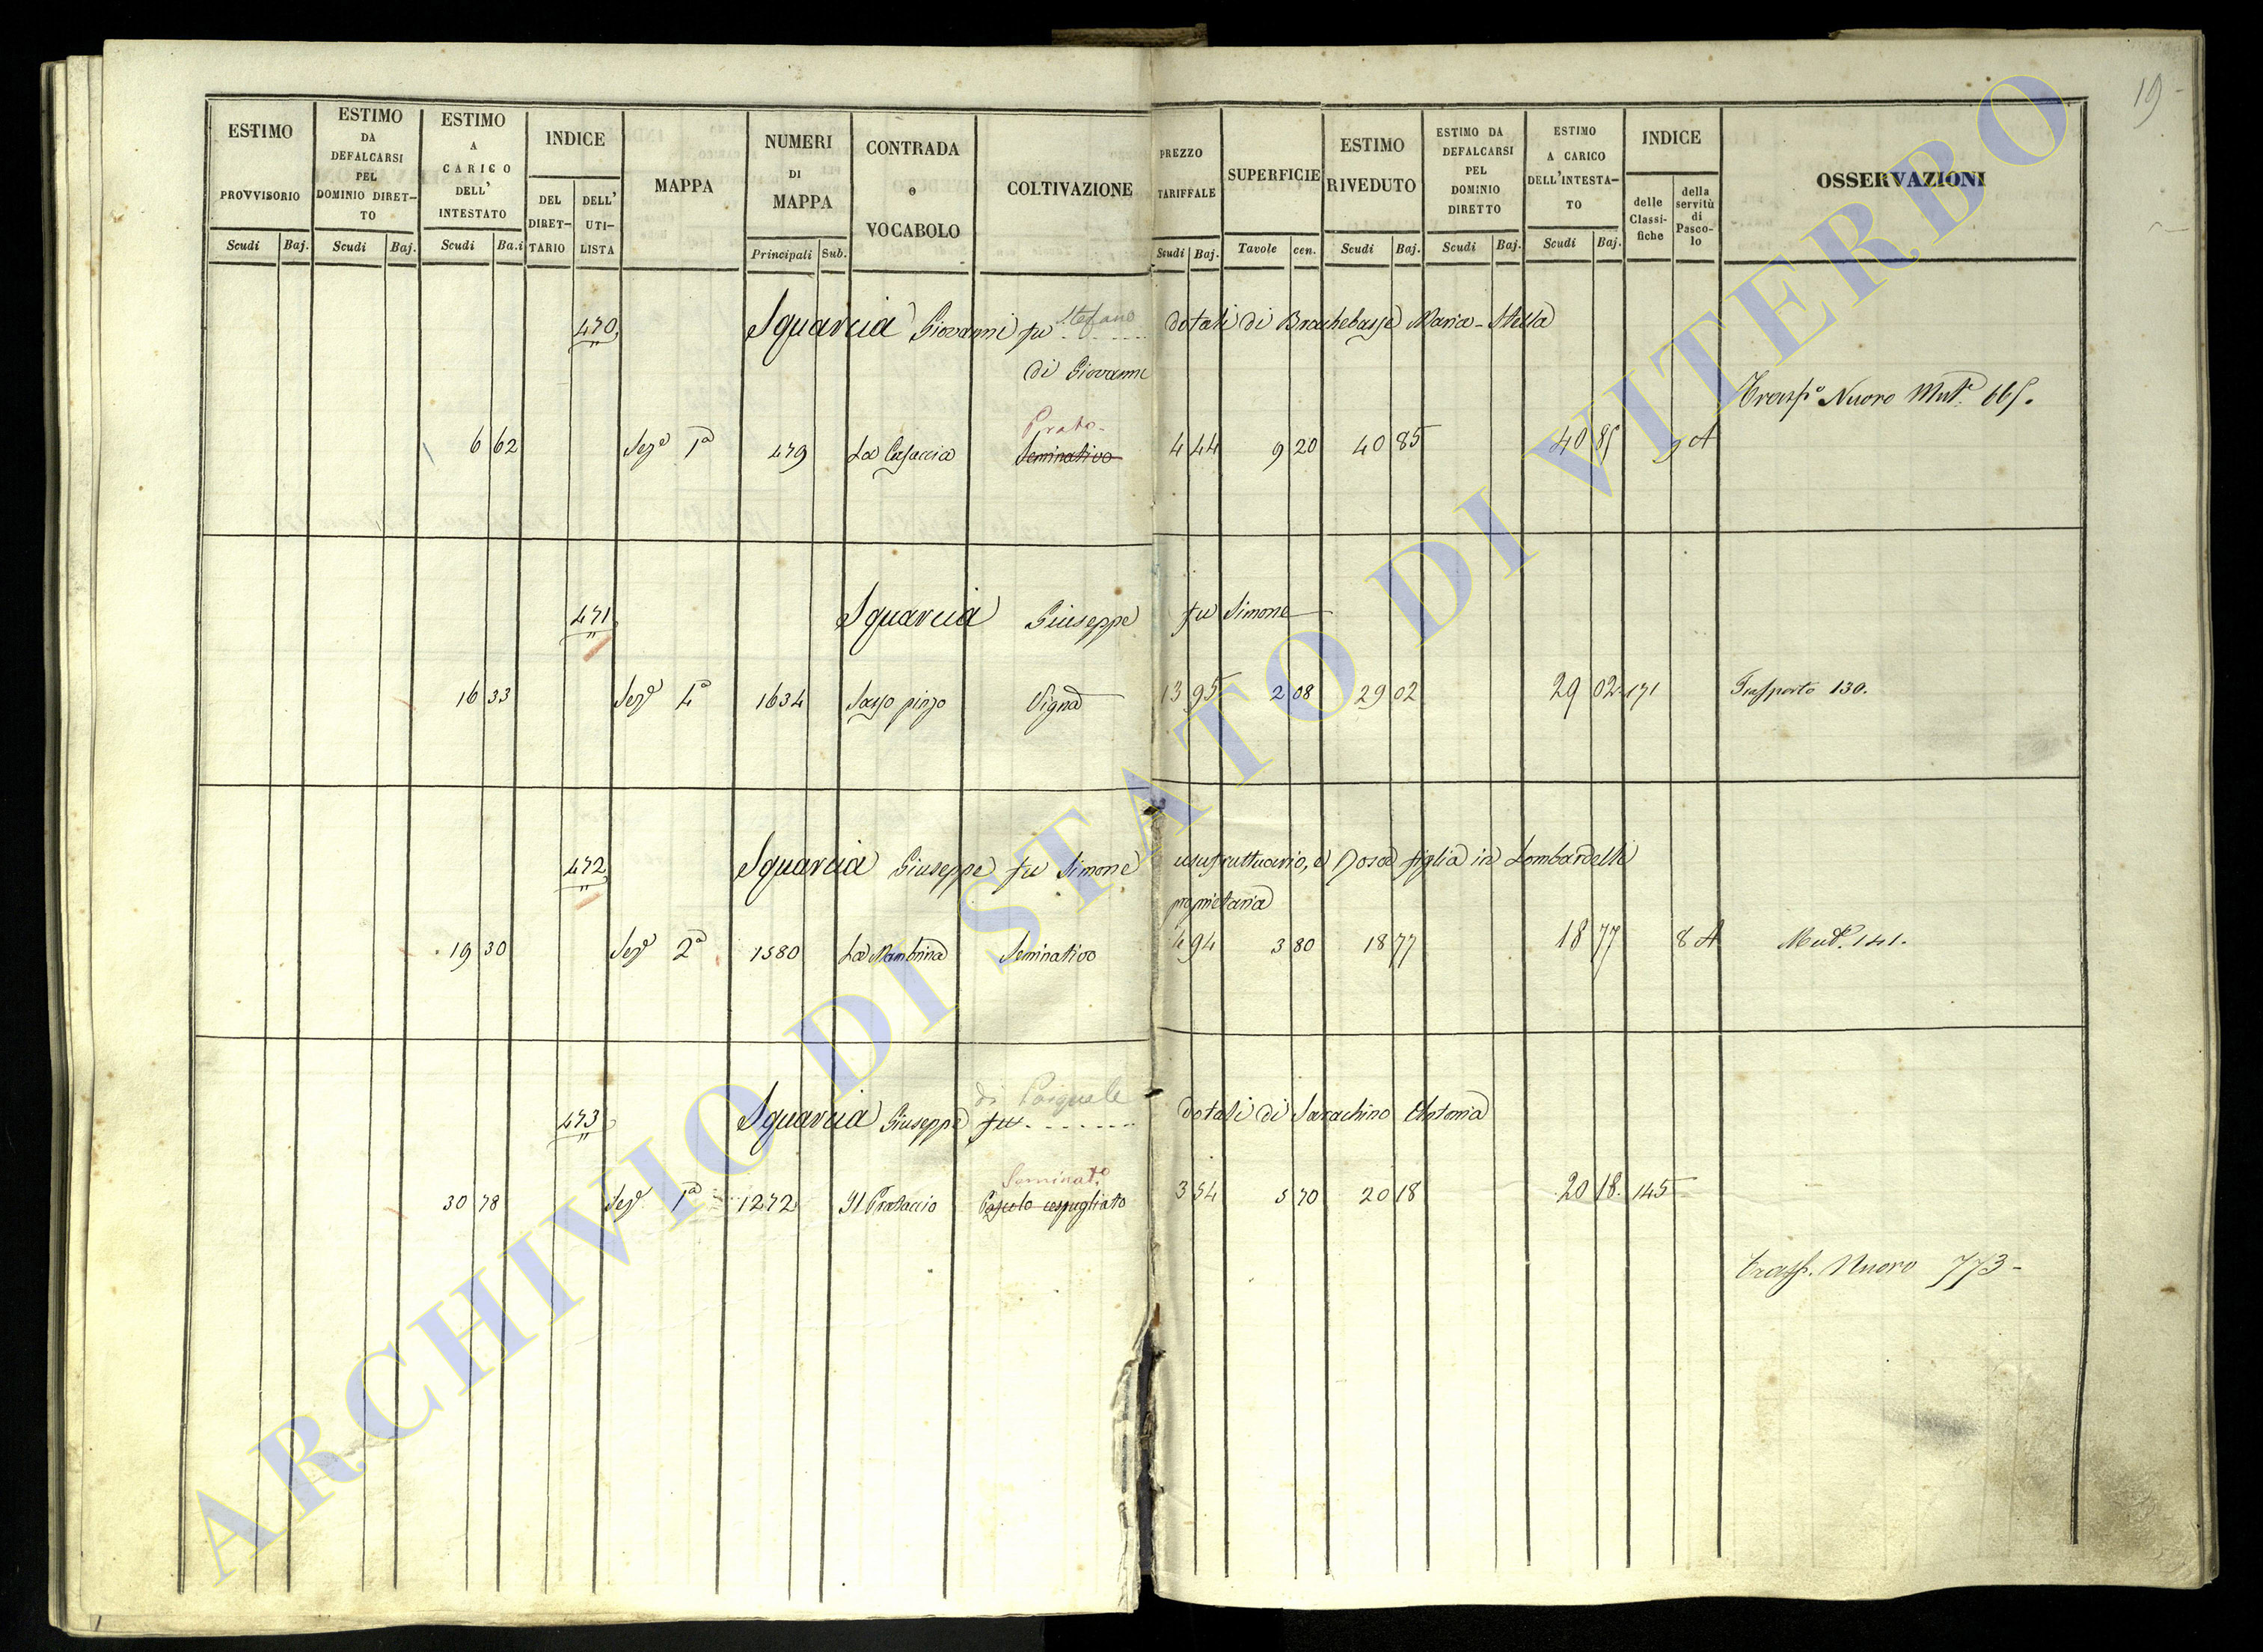 19
ESTIMO PROVVISORIO Scudi Baj. ESTIMO DA DEFALCARSI PEL DOMINIO DIRET-TO Scudi Baj. ESTIMO A CARICO DELL' INTESTATO Scudi Ba.i INDICE DEL DIRET-TARIO DELL' UTI-LISTA MAPPA NUMERI DI MAPPA Principali Sub. CONTRADA o VOCABOLO COLTIVAZIONE PREZZO TARIFFALE Scudi Baj. SUPERFICIE Tavole cen. ESTIMO RIVEDUTO Scudi Baj. ESTIMO DA DEFALCARSI PEL DOMINIO DIRETTO Scudi Baj. ESTIMO A CARICO DELL'INTESTA-TO Scudi Baj. INDICE delle Classi-fiche della servitù di Pasco-lo OSSERVAZIONI
470 Squarcia Giovanni fu Stefano dotali di Maria-Stella
di Giovanni
Trasp.o Nuovo Mut.e 665.
Prato
6 62 Sez.e 1a 479 La Casaccia Seminativo 4 44 9 20 40 85 40 85 9 A
471 Squarcia Giuseppe fu Simone
16 33 Sez.e 4a 1634 Sasso pinzo Vigna 13 95 2 08 29 02 29 02 171 Trasporto 130.
472 Squarcia Giuseppe fu Simone usufruttuario, e Rosa figlia in Lombardelli
proprietaria
19 30 Sez.e 2a 1580 La Mambrina Seminativo 4 94 3 80 18 77 18 77 8 A Mut.e 141.
di Pasquale
473 Squarcia Giuseppe fu dotali di Sarachino Antonia
Seminato
30 78 Sez.e 1a 1272 Il Prataccio Pascolo cespugliato 3 54 5 70 20 18 20 18 145
Trasp. Nuovo 773
ARCHIVIO DI STATO DI VITERBO